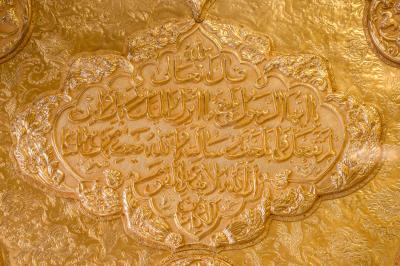 قال الله تعالى
يا أيها الرسول بلغ ما أنزل إليك من ربك وإن
لم تفعل فما بلغت رسالته والله يعصمك من الناس
إن الله لا يهدي القوم
الكافرين